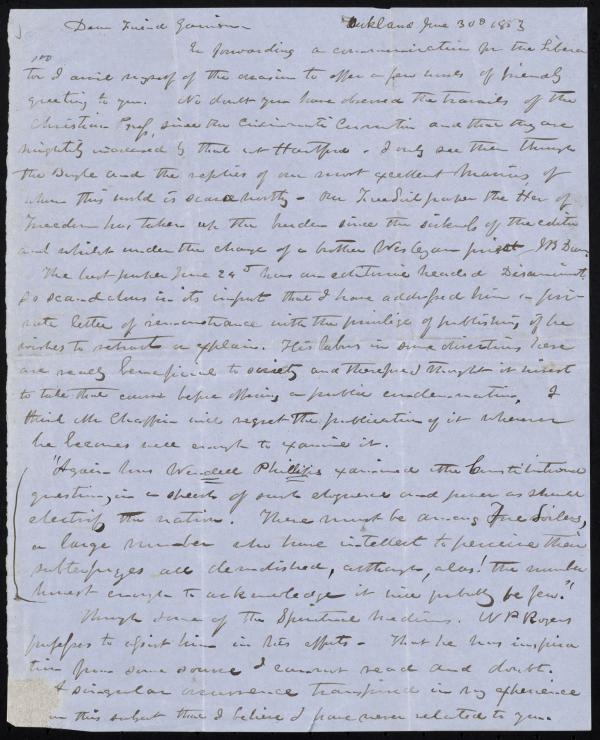 Dear Friend Garrison June 30th 1853
In forwarding a communication for the Libera
tor I avail myself of the occasion to offer a few lines of friendly
greeting to you. No doubt you have observed the travails of the
Christian Press, since the Cincinnati Convention and that they are
mightily increased by that at Hartford. I only see them through
the Bugle and the replies of our most excellent
whom this world is scarce worthy. Our Free Soil paper the
Freedom has taken up the burden since the sickness of the editor
and whilst under the charge of a brother Wesleyan priest J B
The last paper June 24th has an editorial headed
so scandalous in its import that I have addressed him a pri-
vate letter of remonstrance with the privilege of publishing if he
wishes to retract or explain. His labors in some directions here
are really beneficial to society and therefore I thought it wisest
to take that course before offering a public condemnation. I
think Mr Chaffin will regret the publication of it whenever
he becomes well enough to examine it.
"Again has Wendell Phillips examined the Constitutional
question, in a speech of such eloquence and power as should
electrify the nation. There must be among Free Soilers,
a large number who have intellect to perceive their
subterfuges all demolished, although, alas! the number
honest enough to acknowledge it will probably be few."
Through some of the Spiritual mediums. N P Rogers
professes to assist him in his efforts. That he has inspira
tion from some source I cannot read and doubt.
A singular occurrence transpired in my experience
on this subject that I believe I have never related to you.